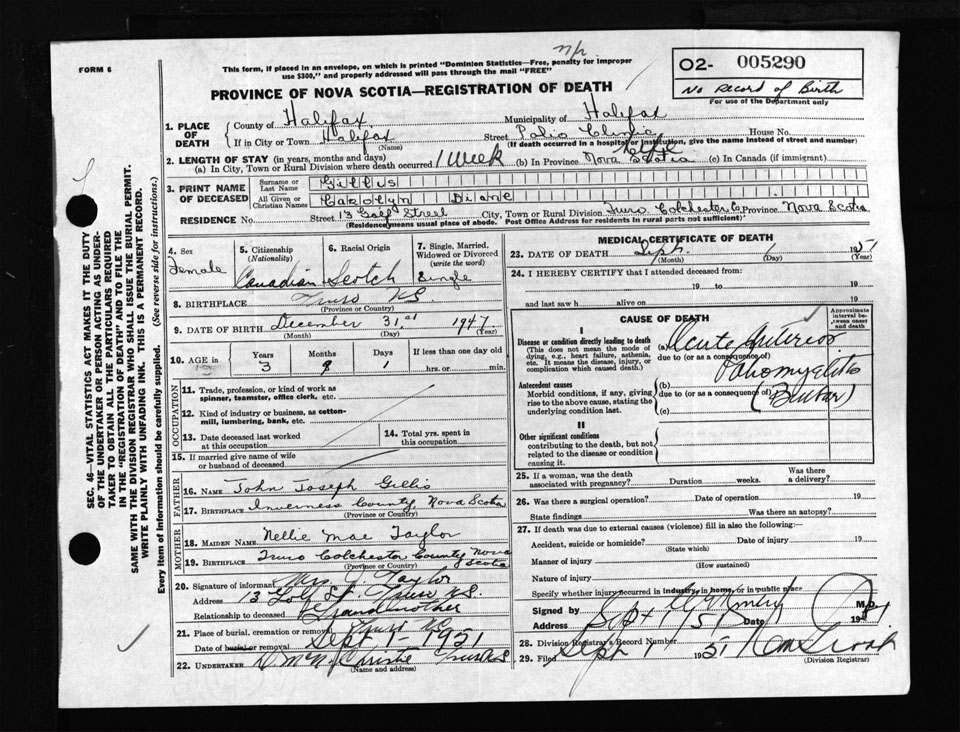 FORM 6
This form, if placed in an envelope, on which is printed "Dominion Statistics—Free, penalty for improper
use $300," and properly addressed will pass through the mail "FREE"
PROVINCE OF NOVA SCOTIA—REGISTRATION OF DEATH
O2- 005290
No Record of Birth
For use of the Department only
1. PLACE OF DEATH
County of Halifax Municipality of Halifax
If in City or Town Halifax Street Polio Clinic House No.
(Name) (If death occurred in a hospital or institution, give the name instead of street and number)
2. LENGTH OF STAY (in years, months and days)
(a) In City, Town or Rural Division where death occurred 1 week (b) In Province Nova Scotia (c) In Canada (if immigrant)
3. PRINT NAME OF DECEASED
Surname or Last Name Gillis
All Given or Christian Names Carolyn Diane
RESIDENCE No. Street 13 Golf Street City, Town or Rural Division Truro Colchester Co Province Nova Scotia
(Residence means usual place of abode. Post Office Address for residents in rural parts not sufficient)
4. Sex Female
5. Citizenship (Nationality) Canadian
6. Racial Origin Scotch
7. Single, Married, Widowed or Divorced (write the word) Single
8. BIRTHPLACE Truro N.S.
(Province or Country)
9. DATE OF BIRTH December 31st 1947
(Month) (Day) (Year)
10. AGE in Years 3 Months 8 Days 1 If less than one day old hrs. or min.
OCCUPATION
11. Trade, profession, or kind of work as spinner, teamster, office clerk, etc.
12. Kind of industry or business, as cotton-mill, lumbering, bank, etc.
13. Date deceased last worked at this occupation
14. Total yrs. spent in this occupation
15. If married give name of wife or husband of deceased
FATHER
16. NAME John Joseph Gillis
17. BIRTHPLACE Inverness County, Nova Scotia
(Province or Country)
MOTHER
18. MAIDEN NAME Nellie Mae Taylor
19. BIRTHPLACE Truro Colchester County Nova Scotia
(Province or Country)
20. Signature of informant Mrs. J. Taylor
Address 13 Golf St. Truro N.S.
Relationship to deceased Grandmother
21. Place of burial, cremation or removal Truro N.S.
Date of burial or removal Sept 1 - 1951
22. UNDERTAKER Christie Truro N.S.
(Name and address)
MEDICAL CERTIFICATE OF DEATH
23. DATE OF DEATH Sept. 1 1951
(Month) (Day) (Year)
24. I HEREBY CERTIFY that I attended deceased from
19 to 19
and last saw h alive on 19
CAUSE OF DEATH
Approximate interval between onset and death
I
Disease or condition directly leading to death
(This does not mean the mode of dying, e.g., heart failure, asthenia, etc. It means the disease, injury, or complication which caused death.)
(a) Acute Anterior
due to (or as a consequence of)
Antecedent causes
Morbid conditions, if any, giving rise to the above cause, stating the underlying condition last.
(b) Poliomyelitis
due to (or as a consequence of)
(Bulbar)
(c)
II
Other significant conditions
contributing to the death, but not related to the disease or condition causing it.
25. If a woman, was the death associated with pregnancy? Duration weeks. Was there a delivery?
26. Was there a surgical operation? Date of operation 19
State findings Was there an autopsy?
27. If death was due to external causes (violence) fill in also the following:—
Accident, suicide or homicide? Date of injury 19
(State which)
Manner of injury
(How sustained)
Nature of injury
Specify whether injury occurred in industry, in home, or in public place
Signed by M.D.
Address Sept 1/51 Date 19
28. Division Registrar's Record Number
29. Filed Sept 1 1951
(Division Registrar)
SEC. 46—VITAL STATISTICS ACT MAKES IT THE DUTY
OF THE UNDERTAKER OR PERSON ACTING AS UNDER-
TAKER TO OBTAIN ALL THE PARTICULARS REQUIRED
IN THE "REGISTRATION OF DEATH" AND TO FILE THE
SAME WITH THE DIVISION REGISTRAR WHO SHALL ISSUE THE BURIAL PERMIT.
WRITE PLAINLY WITH UNFADING INK. THIS IS A PERMANENT RECORD.
Every item of information should be carefully supplied. (See reverse side for instructions.)